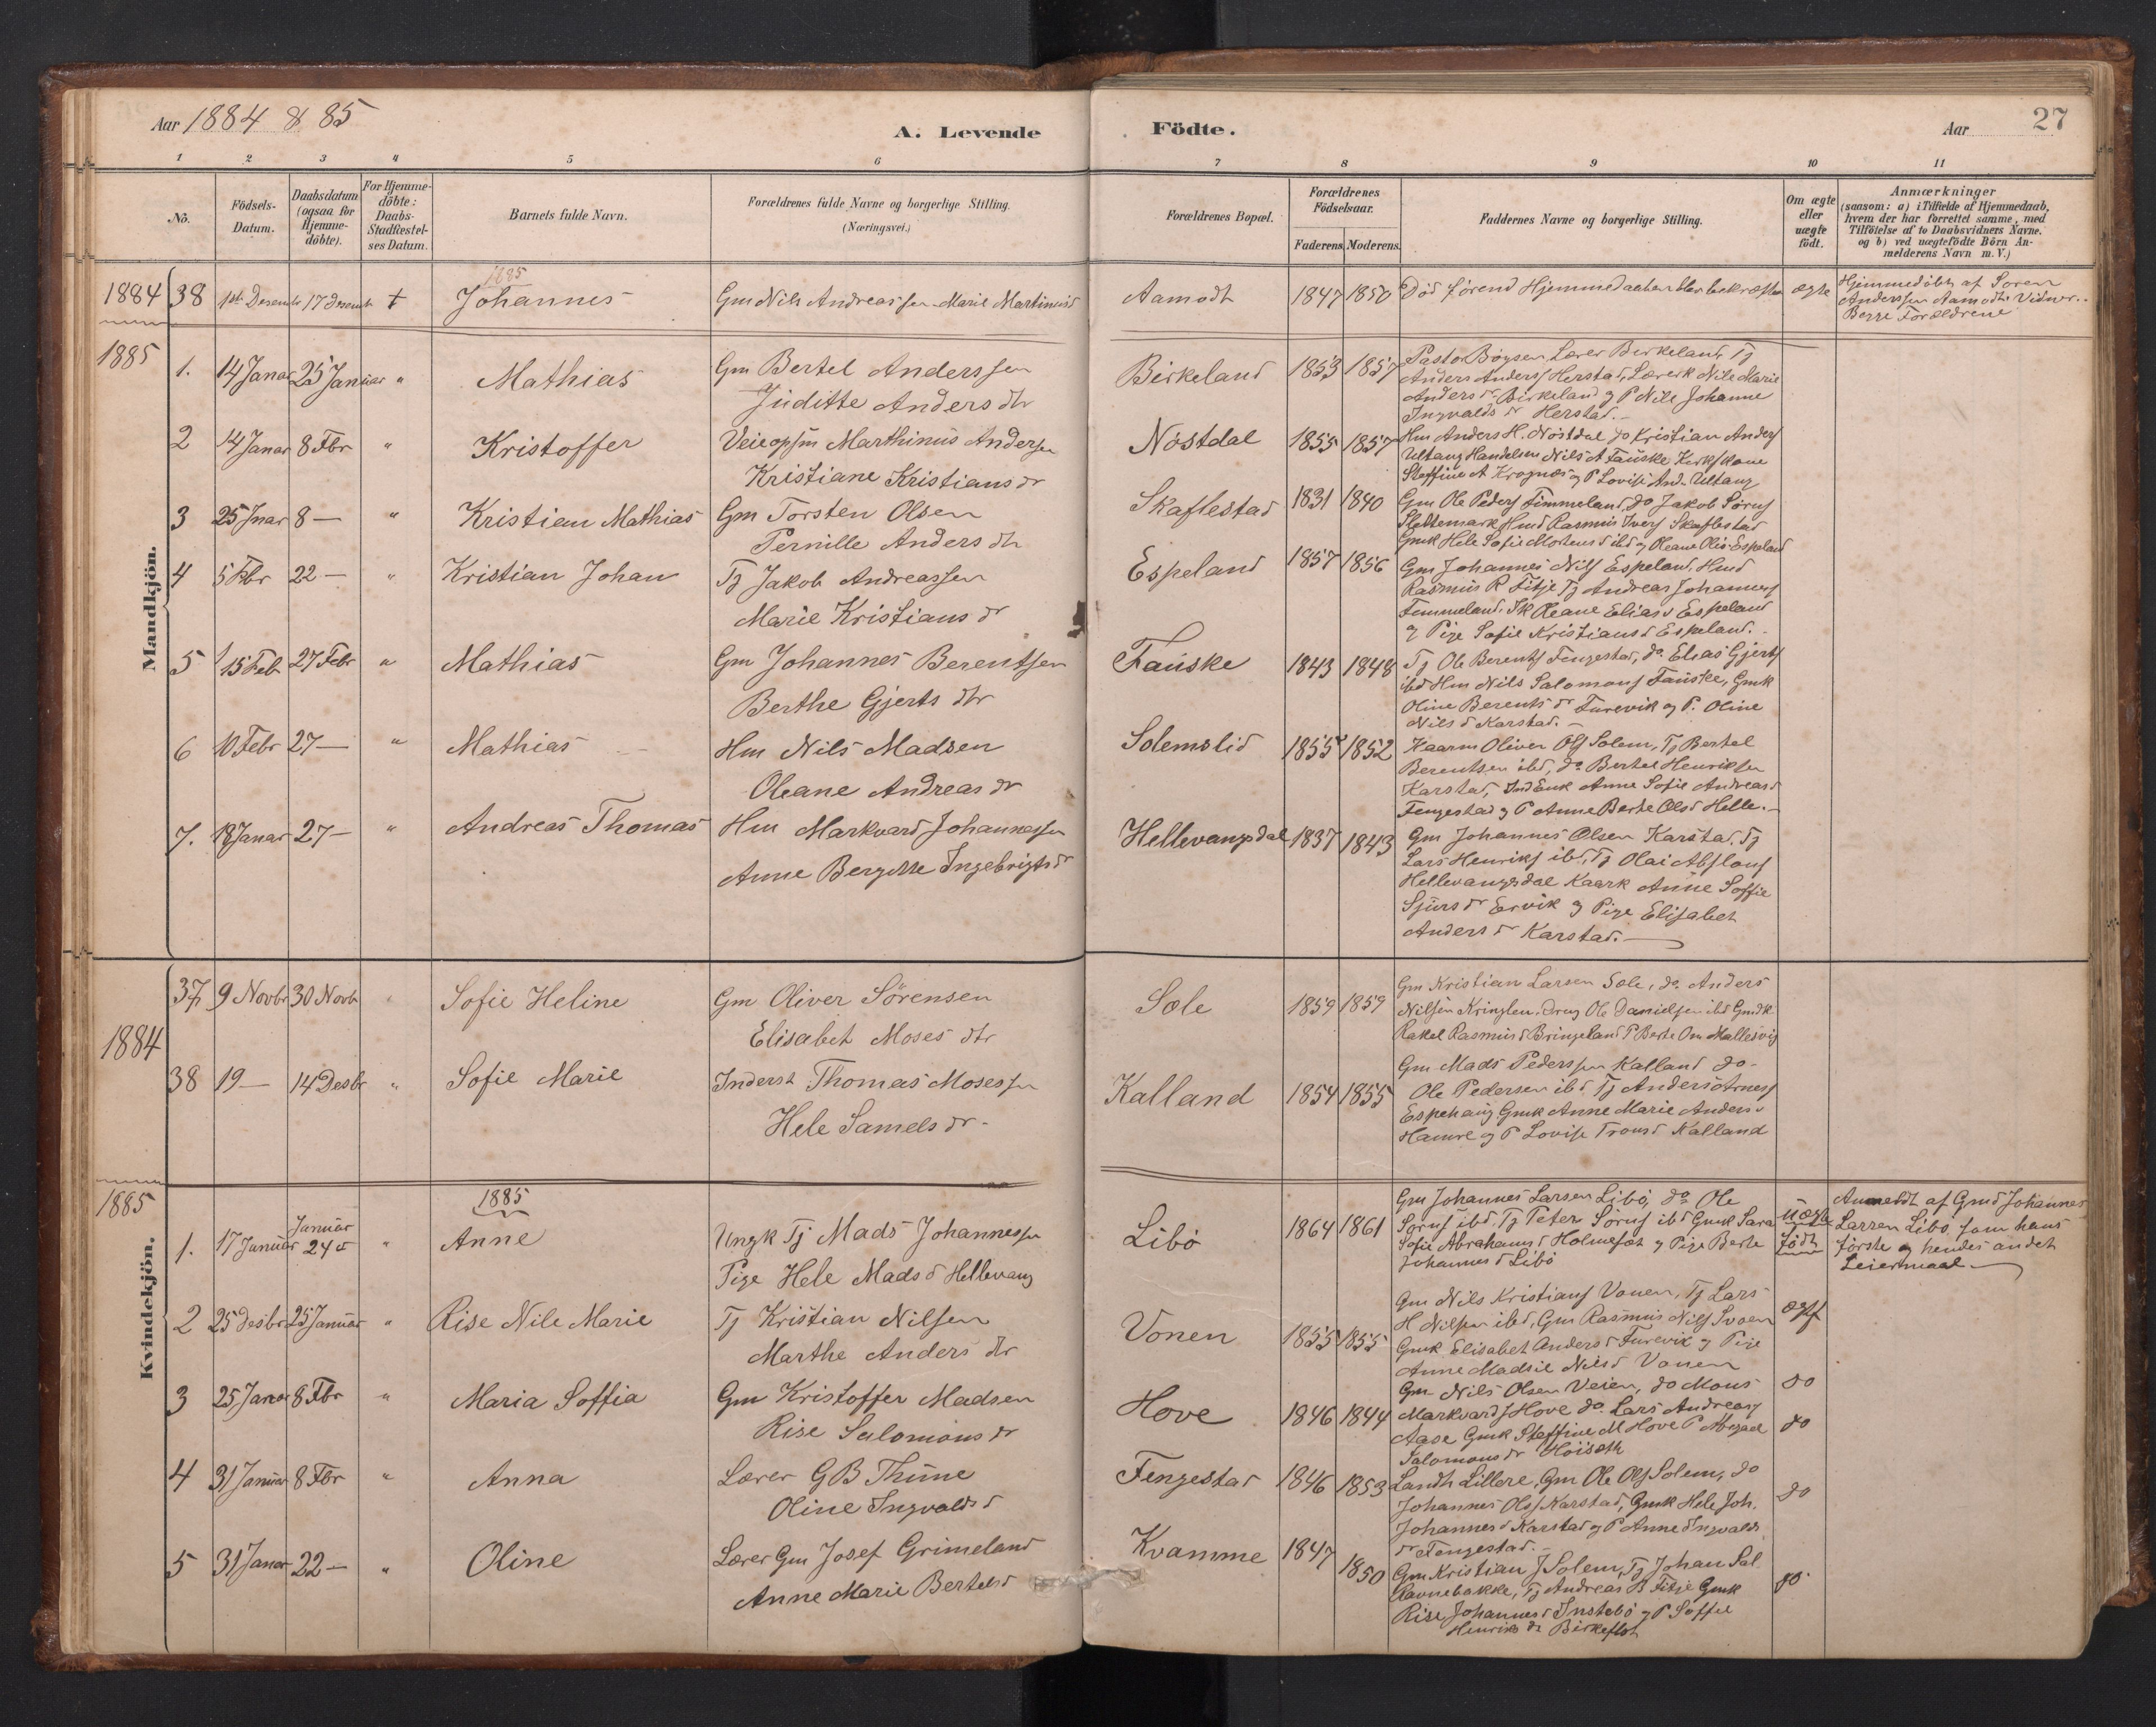 Aar 1884 & 85
A. Levende Födte.
Aar
27
1 2 3 4 5 6 7 8 9 10 11
No.
Födsels-
Datum.
Daabsdatum
(ogsaa for
Hjemme-
döbte).
For Hjemme-
döbte:
Daabs-
Stadfæstel-
ses Datum.
Barnets fulde Navn.
Forældrenes fulde Navne og borgerlige Stilling.
(Næringsvei.)
Forældrenes Bopæl.
Forældrenes
Födselsaar.
Faderens. Moderens.
Faddernes Navne og borgerlige Stilling.
Om ægte
eller
uægte
födt.
Anmærkninger
(saasom: a) i Tilfælde af Hjemmedaab,
hvem der har forrettet samme, med
Tilföielse af to Daabsvidners Navne.
og b) ved uægtefödte Börn An-
melderens Navn m. V.)
Mandkjön.
1884 38 1ste Desembr 17 Desembr † Johannes Gm Nils Andreassen Marie Martinusd Aamodt 1847 1850 Död førend Hjemmedaaben blev bekræftet ægte
Hjemmedøbt af Søren
Anderssen Aamodt Vidner..
Begge Forældrene
1885
1885
1. 14 Januar 25 Januar " Mathias Gm Bertel Anderssen
Juditte Anders dtr
Birkeland 1853 1857
Pastor Bøgsen, Lærer Birkeland, Tj
Anders Anderss Herstad, Lærerk Nile Marie
Anders d Birkeland og P Nille Johanne
Ingvalds dr Herstad.
2 14 Januar 8 Fbr " Kristoffer Veiopsm Marthinus Andersen
Kristiane Kristians dr
Nøstdal 1855 1857
Hm Anders H. Nøstdal do Kristian Anders
Ultang Handelsm Nils A Fauske Kirkskone
Steffine A Krognæs og P Lovise And. Ultang
3 25 Jnar 8 — " Kristian Mathias Gm Torsten Olsen
Pernille Anders dtr
Skaflestad 1831 1840
Gm Ole Peders Timmeland, do Jakob Sørens
Slettemark Hmd Rasmus Ivers Skaflestad
Gmk Hele Sofie Mortens d ibd og Oleane Olis Espeland
4 5 Fbr 22 — " Kristian Johan Tj Jakob Andreassen
Marie Kristians dr
Espeland 1857 1856
Gm Johannes Nils Espeland, Hmd
Rasmus R Fitje Tj Andreas Johannes
Timmeland, Sk Oleane Elias d Espeland
og Pige Sofie Kristians d Espeland.
5 15 Feb 27 Febr " Mathias Gm Johannes Berentsen
Berthe Gjerts dtr
Fauske 1843 1848
Tj Ole Berents Fengestad, do Elias Gjerts
ibd Hm Nils Salomons Fauske, Gmk
Oline Berents dr Furevik og P. Oline
Nils d Karstad.
6 10 Febr 27 — " Mathias Hm Nils Madsen
Oleane Andreas dr
Solemslid 1855 1852
Kaarm Oliver Ols Solem, Tj Bertel
Berentsen ibd, do Bertel Henriksen
Karstad, Ind Enk Anne Sofie Andreas d
Fengestad og P Anne Berte Ols d Helle.
7. 18 Januar 27 — " Andreas Thomas Hm Markvard Johannessen
Anne Bergitte Ingebrigts dr
Hellevangsdal 1837 1843
Gm Johannes Olsen Karstad, Tj
Lars Henriks ibd, Tj Olai Abslons
Hellevangsdal Kaark Anne Soffie
Sjurs dr Ervik og Pige Elisabet
Anders dr Karstad.
1884
37 9 Novbr 30 Novb " Sofie Heline Gm Oliver Sörensen
Elisabet Moses dtr
Sole 1859 1859
Gm Kristian Larsen Sole, do Anders
Nilsen Kringlen, Drng Ole Danielsen ibd Gmdk
Rakel Rasmus d Bringeland P Berte Om Mallesvig
38 19 — 14 Desbr " Sofie Marie Inderst Thomas Mosessen
Hele Samels dr
Kalland 1854 1855
Gm Mads Pederssen Kalland do
Ole Pedersen ibd, Tj Anders Arness
Espehaug Gmk Anne Marie Anders d
Hamre og P Lovise Trons d Kalland
Kvindekjön.
1885
1885
1. 17 Januar Januar 24 " Anne Ungk Tj Mads Johannessen
Pige Hele Mads d Hellevang
Libö 1864 1861
Gm Johannes Larsen Libö, do Ole
Sørens ibd, Tj Peter Sørens ibd Gmk Sara
Sofie Abrahams d Holmefot og Pige Berte
Johannes d Libö
uægte
födt
Anmeldt af Gmd Johannes
Larsen Libö som hans
første og hendes andet
Leiermaal
2 25 Desbr 25 Januar " Rise Nile Marie Tj Kristian Nilsen
Marthe Anders dr
Vonen 1855 1855
Gm Nils Kristians Vonen, Tj Lars
H Nilsen ibd, Gm Rasmus Nils Svoen
Gmk Elisabet Anders d Furevik og Pige
Anne Madsie Nils d Vonen
ægte
3 25 Januar 8 Fbr " Maria Soffia Gm Kristoffer Madsen
Rise Salomons dr
Hove 1846 1844
Gm Nils Olsen Veien, do Mons
Markvards Hove do. Lars Andreas
Aase Gmk Steffine M Hove P Abigael
Salomons dr Høiseth
do
do
4 31 Januar 8 Fbr " Anna Lærer G B Thune
Oline Ingvalds d
Fengestad 1846 1853
Landh Lillere, Gm Ole Ols Solem, do
Johannes Ols Karstad, Gmk Hele Joh.
Johannes d Karstad og P Anne Ingvalds
dr Fengestad.
do
5 31 Januar 22 — " Oline Lærer Gm Josef Grimeland
Anne Marie Bertelsd
Kvamme 1847 1850
Gm Kristian J Solem, Tj Johan Sal
Ravnebakke, Tj Andreas B Fitje Gmk
Rise Johannes d Instebö og P Soffie
Henriks dr Birkeflot
do